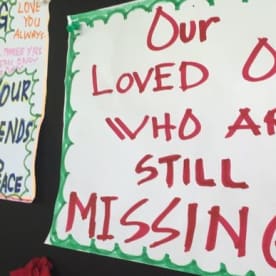 G LOVE
YOU
ALWAYS.
OUR
ENDS
PEACE
Our
LOVED O
WHO AR
STILL
MISSING